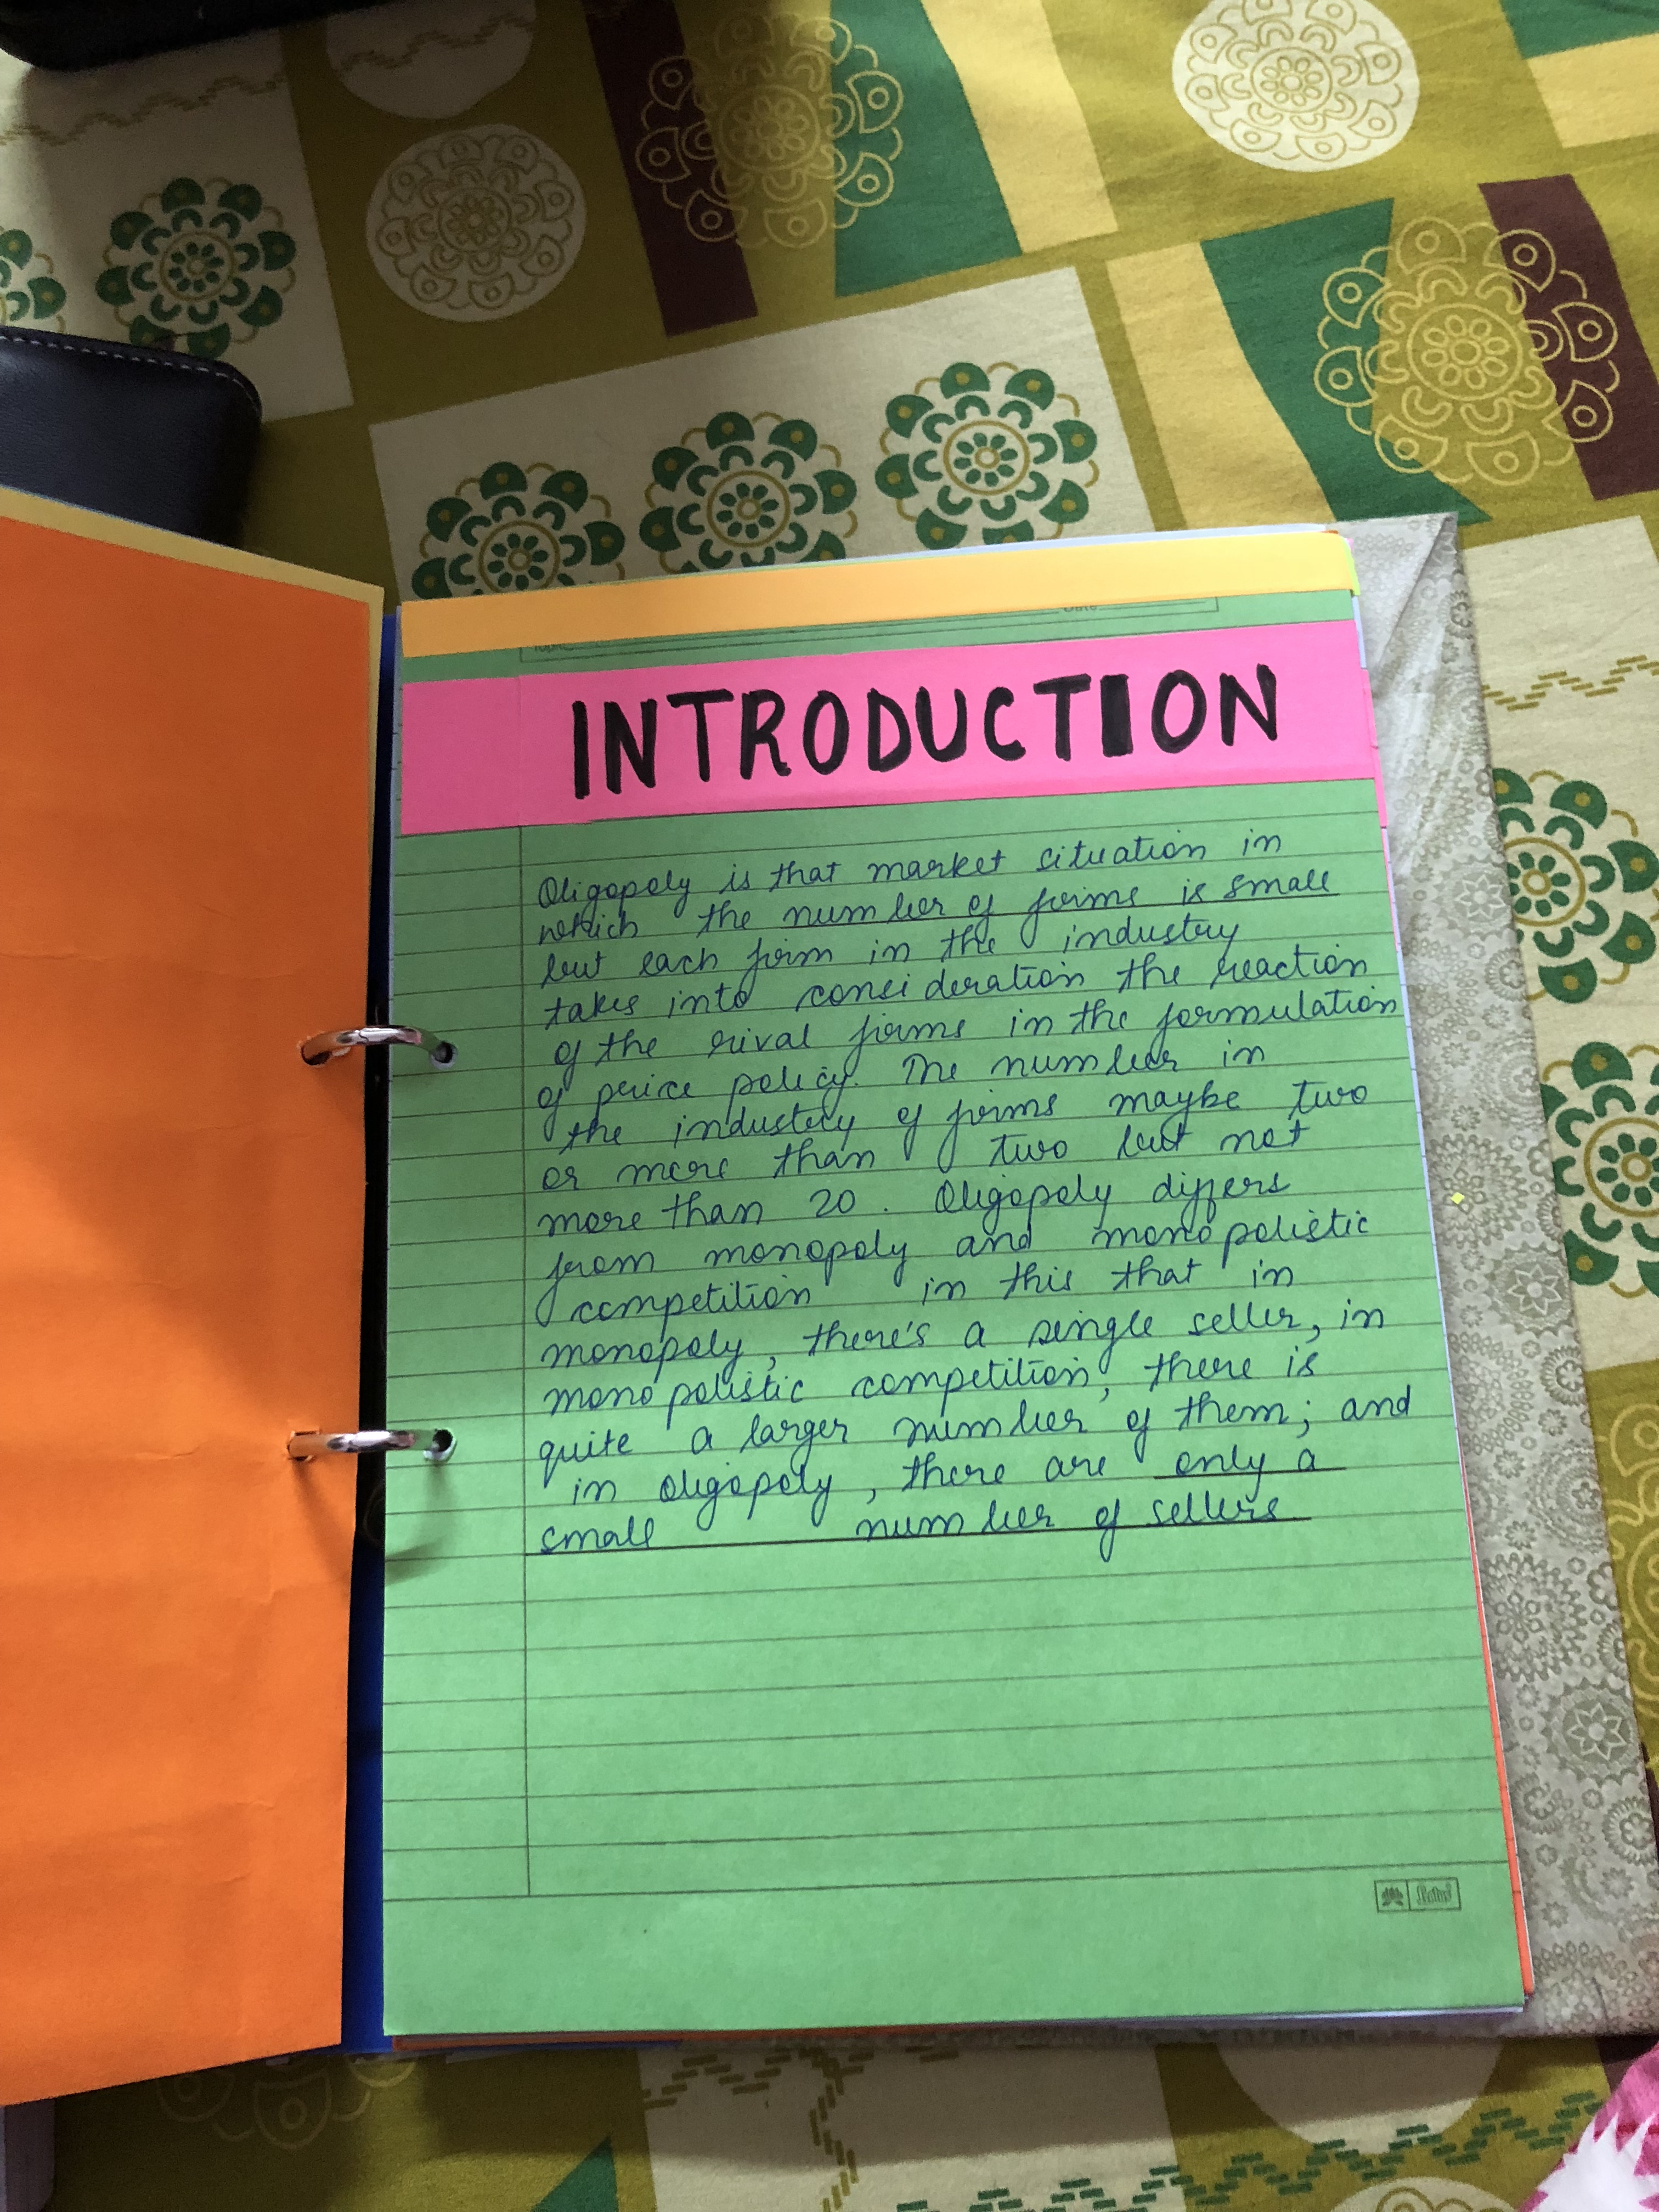 Date
INTRODUCTION
Oligopoly is that market situation in
which the number of firms is small
but each firm in the industry
takes into consideration the reaction
of the rival firms in the formulation
of price policy. The number in
the industry of firms maybe two
or more than two but not
more than 20. Oligopoly differs
from monopoly and monopolistic
competition in this that in
monopoly, there's a single seller, in
monopolistic competition, there is
quite a larger number of them; and
in oligopoly, there are only a
small number of sellers